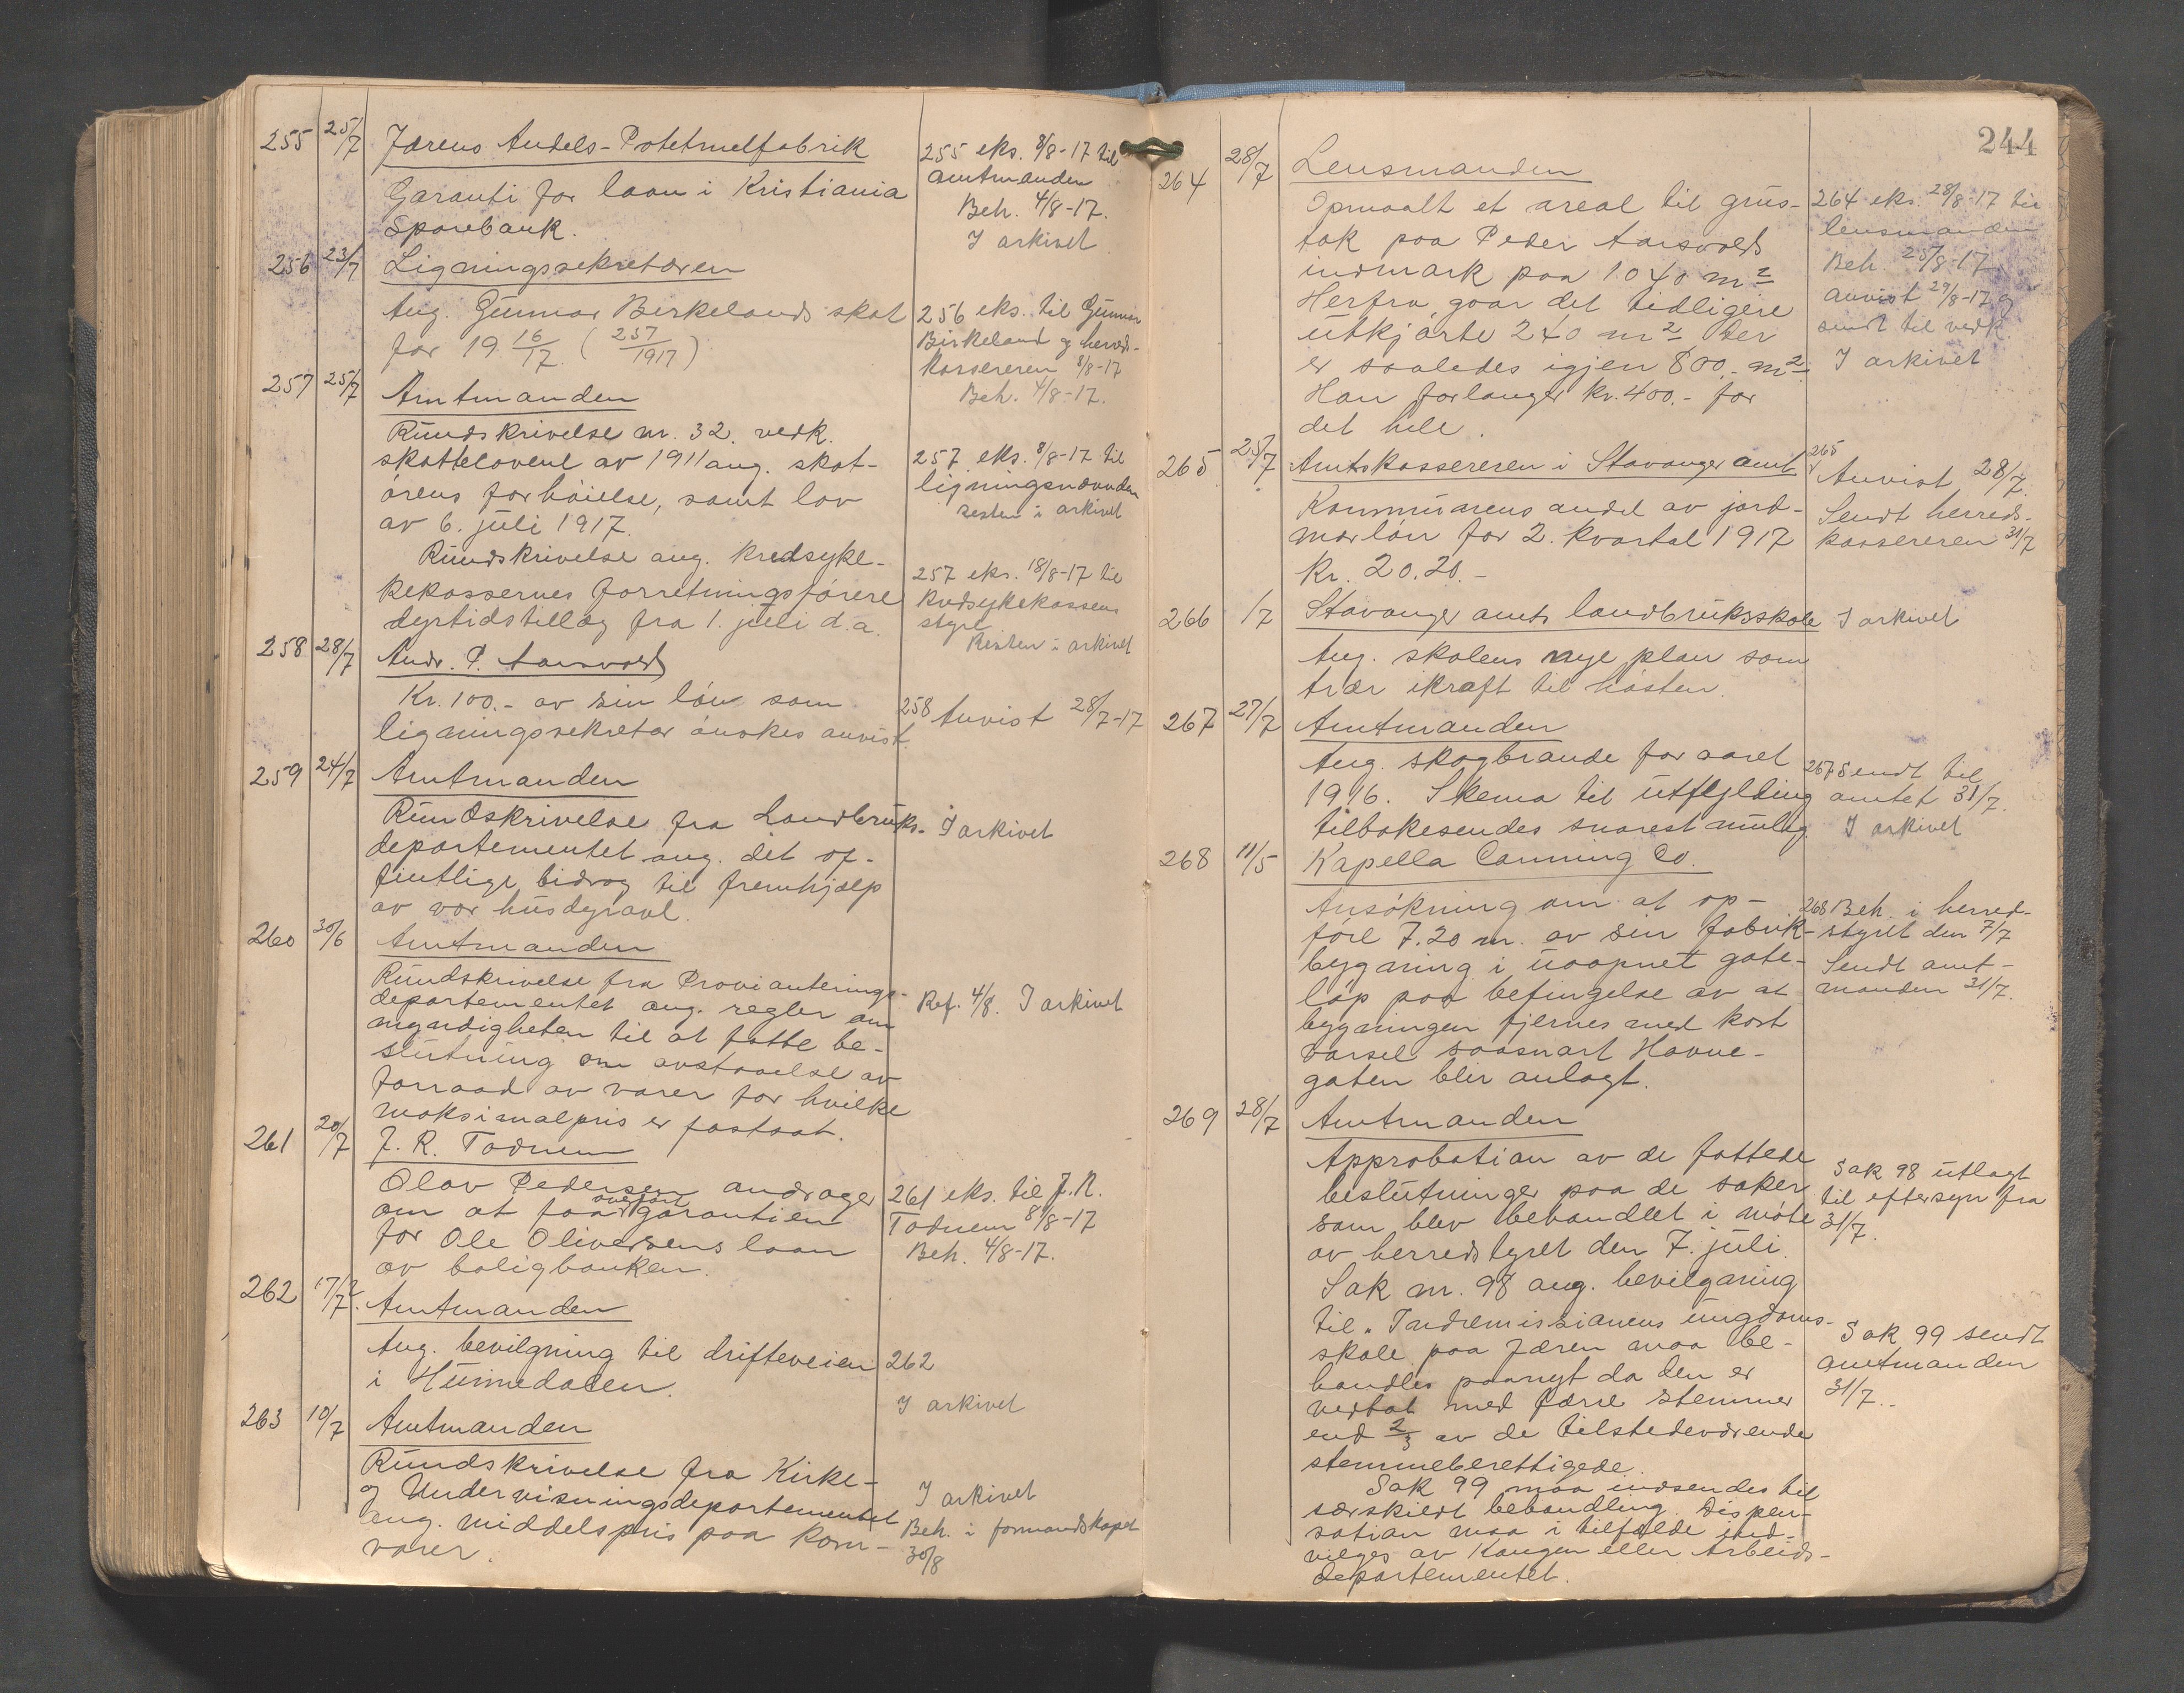 255 25/7 Jærens Andels-Potetmelfabrik
Garanti for laan i Kristiania
Sparebank.
255 eks. 8/8-17 til
amtmanden
Beh. 4/8-17.
I arkivet
256 23/7 Ligningssekretæren
Ang. Gunnar Birkelands skat
for 19 16/17. (257/1917)
256 eks. til Gunnar
Birkeland og herreds-
kassereren 8/8-17
Beh. 4/8-17.
257 25/7 Amtmanden
Rundskrivelse nr. 32. vedk.
skatteloven av 1911 ang. skat-
ørens forhøielse, samt lov
av 6. juli 1917.
257 eks. 8/8-17 til
ligningsnævnden
resten i arkivet
Rundskrivelse ang. kredsyke-
kekassernes forretningsførere
dyrtidstillæg fra 1. juli d.a.
257 eks. 18/8-17 til
kredsykekassens
styre
Resten i arkivet
258 28/7 Andr. P. Aarsvold
Kr. 100.- av sin løn som
ligningssekretær ønskes anvist.
258 Anvist 28/7-17
259 24/7 Amtmanden
Rundskrivelse fra Landbruks-
departementet ang. det of-
fentlige bidrag til fremhjælp
av vor husdyravl.
I arkivet
260 30/6 Amtmanden
Rundskrivelse fra Provianterings-
departementet ang. regler om
myndigheten til at fatte be-
slutning om avstaaelse av
forraad av varer for hvilke
maksimalpris er fastsat.
Ref. 4/8. I arkivet
261 20/7 J. R. Todnem
Olav Pedersen andrager
om at faa overført garantien
for Ole Oliversens laan
av boligbanken.
261 eks. til J. R.
Todnem 8/8-17
Beh. 4/8-17.
262 17/7. Amtmanden
Ang. bevilgning til drifteveien
i Hunnedalen.
262
I arkivet
263 10/7 Amtmanden
Rundskrivelse fra Kirke-
og Undervisningsdepartementet
ang. middelspris paa korn-
varer.
I arkivet
Beh. i formandskapet
30/8
244
264 28/7 Lensmanden
Opmaalt et areal til grus-
tak paa Peder Aarsvolds
indmark paa 1040 m2
Herfra gaar det tidligere
utkjørte 240 m2 Der
er saaledes igjen 800.- m2.
Han forlanger kr. 400.- for
det hele.
264 eks. 28/8-17 til
lensmanden
Beh. 25/8-17.
Anvist 29/8-17 og
sendt til vedk.
I arkivet
265 25/7 Amtskassereren i Stavanger amt
Kommunens andel av jord-
morløn for 2. kvartal 1917
Kr. 20.20.-
265
Anvist 28/7.
Sendt herreds-
kassereren 31/7
266 /7 Stavanger amts landbruksskole
Ang. skolens nye plan som
trær ikraft til høsten.
I arkivet
267 27/7 Amtmanden
Ang. skogbrande for aaret
1916. Skema til utfylding
tilbakesendes snarest mulig
267 Sendt til
amtet 31/7.
I arkivet
268 11/5 Kapella Canning Co.
Ansøkning om at op-
føre 7.20 m. av sin fabrik-
bygning i uaapnet gate-
løp paa betingelse av at
bygningen fjernes med kort
varsel saasnart Havne-
gaten blir anlagt.
268 Beh. i herred-
styret den 7/7
Sendt amt-
manden 31/7.
269 28/7 Amtmanden
Approbation av de fattede
beslutninger paa de saker
som blev behandlet i møte
av herredstyret den 7. juli.
Sak nr. 98 ang. bevilgning
til „Indremissionens ungdoms-
skole paa Jæren maa be-
handles paanyt da den er
vedtat med færre stemmer
end 2/3 av de tilstedeværende
stemmeberettigede.
Sak 99 maa indsendes til
særskildt behandling. Dispen-
sation maa i tilfælde ind-
vilges av Kongen eller Arbeids-
departementet.
Sak 98 utlagt
til eftersyn fra
31/7.
Sak 99 sendt
amtmanden
31/7.